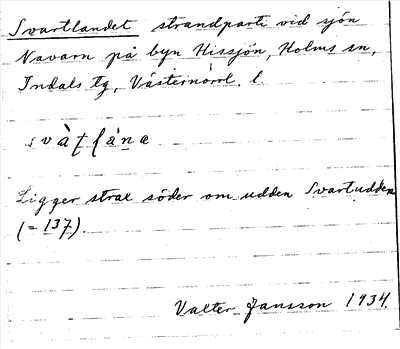 Svartlandet strandparti vid sjön
Navarn på byn Hissjön, Holms sn,
Indals tg, Västernorrl. l.
svàt̠láne
Ligger strax söder om udden Svartudden
(= 137).
Valter Jansson 1934.